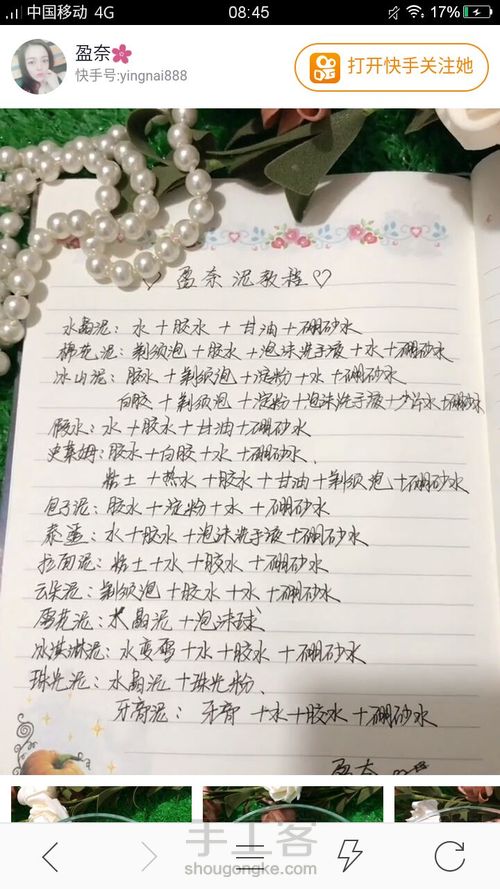 中国移动 4G 08:45 17%
盈奈🌸
快手号:yingnai888
打开快手关注她
♡ 盈奈泥教程♡
水晶泥：水+胶水+甘油+硼砂水
棉花泥：剃须泡+胶水+泡沫洗手液+水+硼砂水
冰山泥：胶水+剃须泡+淀粉+水+硼砂水
白胶+剃须泡+淀粉+泡沫洗手液+少片水+硼砂水
假水：水+胶水+甘油+硼砂水
史莱姆：胶水+白胶+水+硼砂水、
粘土+热水+胶水+甘油+剃须泡+硼砂水
包子泥：胶水+淀粉+水+硼砂水
泰蛋：水+胶水+泡沫洗手液+硼砂水
拉面泥：粘土+水+胶水+硼砂水
云朵泥：剃须泡+胶水+水+硼砂水
雪花泥：水晶泥+泡沫球
冰淇淋泥：水变雪+水+胶水+硼砂水
珠光泥：水晶泥+珠光粉、
牙膏泥：牙膏+水+胶水+硼砂水
盈奈
手工客
shougongke.com